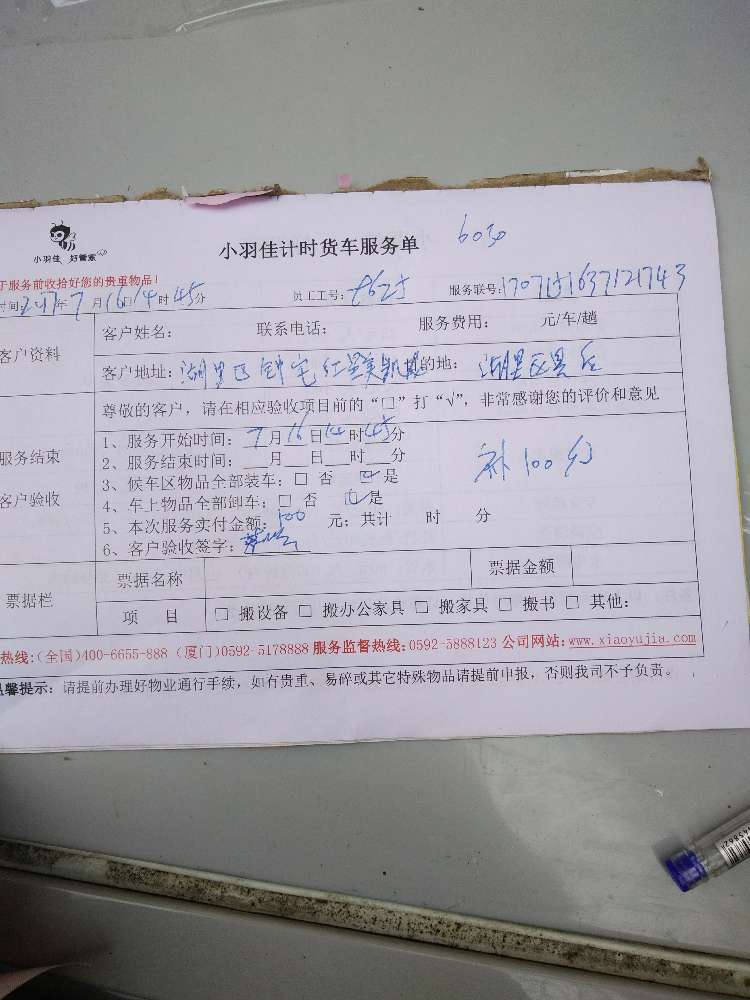 小羽佳 好管家
小羽佳计时货车服务单 60元
于服务前收拾好您的贵重物品！
时间2017年7月16日14时45分 员工工号: 8625 服务联号: 1707151637121743
客户资料
客户姓名: 联系电话: 服务费用: 元/车/趟
客户地址: 湖里区钟宅红星美凯龙 目的地: 湖里区
尊敬的客户，请在相应验收项目前的“□”打“√”，非常感谢您的评价和意见
服务结束
客户验收
1、服务开始时间: 7月16日14时45分
2、服务结束时间: __月__日__时__分
3、候车区物品全部装车: □ 否 ☑是
4、车上物品全部卸车: □ 否 ☑是
5、本次服务实付金额: 100 元; 共计 时 分
6、客户验收签字:
补100
票据栏
票据名称 票据金额
项 目 □ 搬设备 □ 搬办公家具 □ 搬家具 □ 搬书 □ 其他:
热线:(全国)400-6655-888 (厦门)0592-5178888 服务监督热线:0592-5888123 公司网站:www.xiaoyujia.com
温馨提示: 请提前办理好物业通行手续，如有贵重、易碎或其它特殊物品请提前申报，否则我司不予负责。